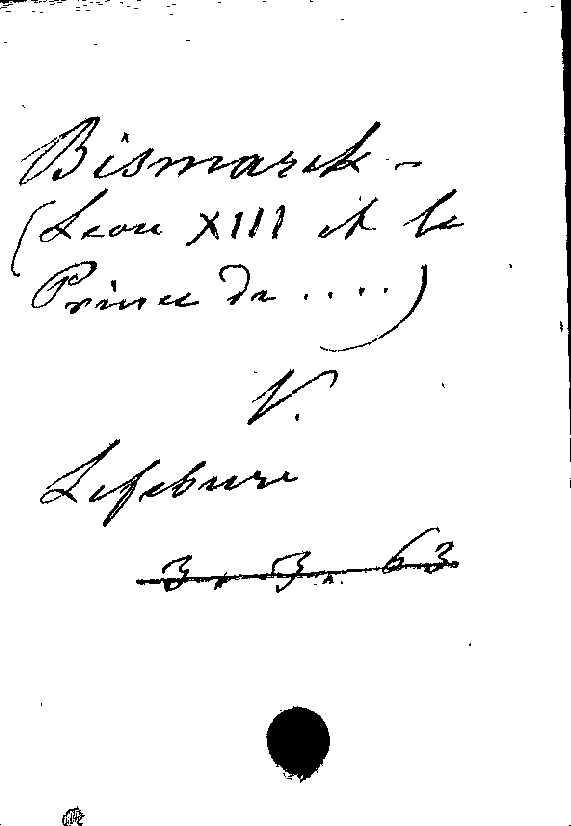 Bismarck -
(Leon XIII et le
Prince de ....)
V.
Lefebure
3. 3. 63